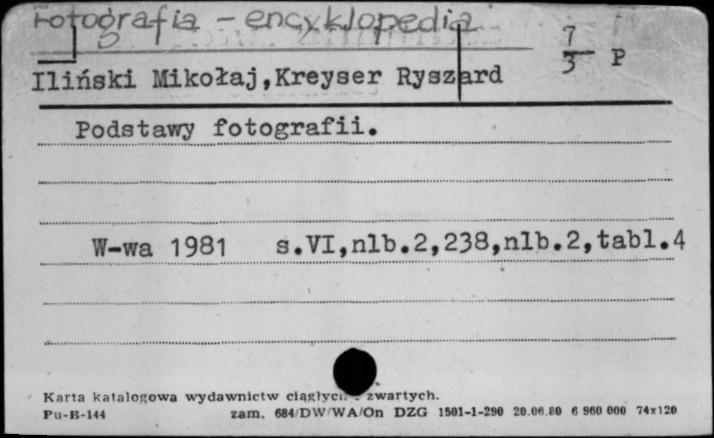 Fotografia - encyklopedia
7/3 P
Iliński Mikołaj,Kreyser Ryszard
Podstawy fotografii.
W-wa 1981 s.VI,nlb.2,238,nlb.2,tabl.4
Karta katalogowa wydawnictw ciągłych zwartych.
Pu-B-144 zam. 684/DW/WA/On DZG 1501-1-290 20.06.80 6 960 000 74x120